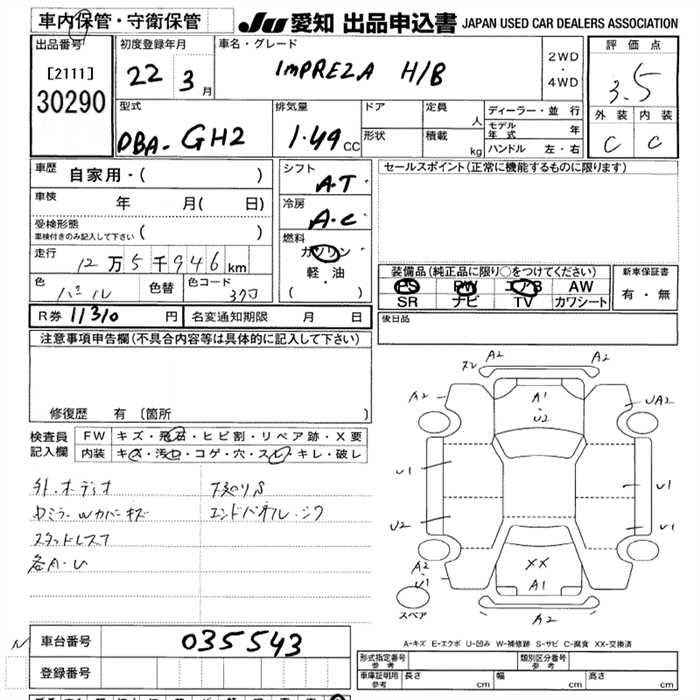 車内保管・守衛保管
JU 愛知 出品申込書 JAPAN USED CAR DEALERS ASSOCIATION
出品番号 初度登録年月 車名・グレード 評価点
[2111] 22 3月 IMPREZA H/B 2WD・4WD 3.5
30290
型式 排気量 ドア 定員 人 ディーラー・並行 外装 内装
DBA-GH2 1.49 CC 形状 積載 kg モデル年式 年 C C
ハンドル 左・右
車歴 自家用・( ) シフト A.T セールスポイント(正常に機能するものに限ります)
車検 年 月( 日) 冷房 A.C
受検形態
車検付きのみ記入して下さい ( ) 燃料 ガソリン
走行 12万5千946km 軽・油
( )
色 パール 色替 色コード 37J
装備品(純正品に限り○をつけてください) 新車保証書
PS PW エアB AW 有・無
SR ナビ TV カワシート
R券 11310円 名変通知期限 月 日 後日品
注意事項申告欄(不具合内容等は具体的に記入して下さい)
修復歴 有(箇所 )
検査員 FW キズ・飛石・ヒビ割・リペア跡・X要
記入欄 内装 キズ・汚レ・コゲ・穴・スレ・キレ・破レ
外.オーディオ
スタッドレス7
各A.U
A2 A2
A2 A1 UA2
U2
U1 U1
U2 U1
A2 XX
U1 A1
スペア A2
A-キズ E-エクボ U-凹み W-補修跡 S-サビ C-腐食 XX-交換済
N 車台番号 035543
登録番号
形式指定番号 参考 類別区分番号 参考
車庫証明用 参考 長さ cm 幅 cm 高さ cm